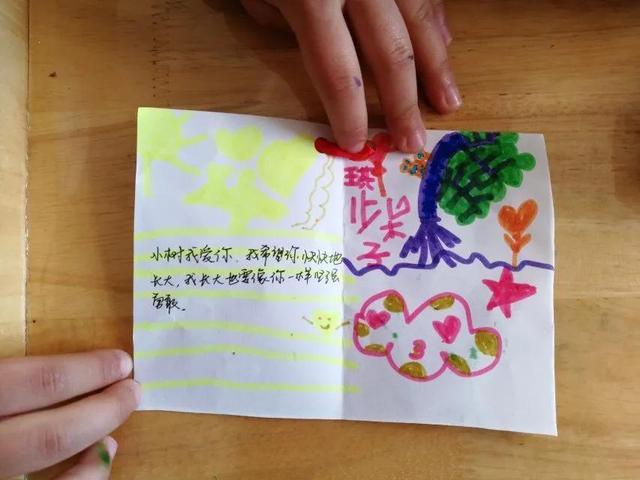 小树我爱你、我希望你小快快地
长大,我长大也要像你一样坚强
勇敢。
琪
子